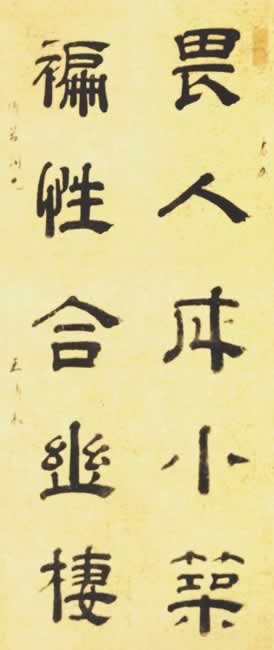 畏人成小築
褊性合幽棲